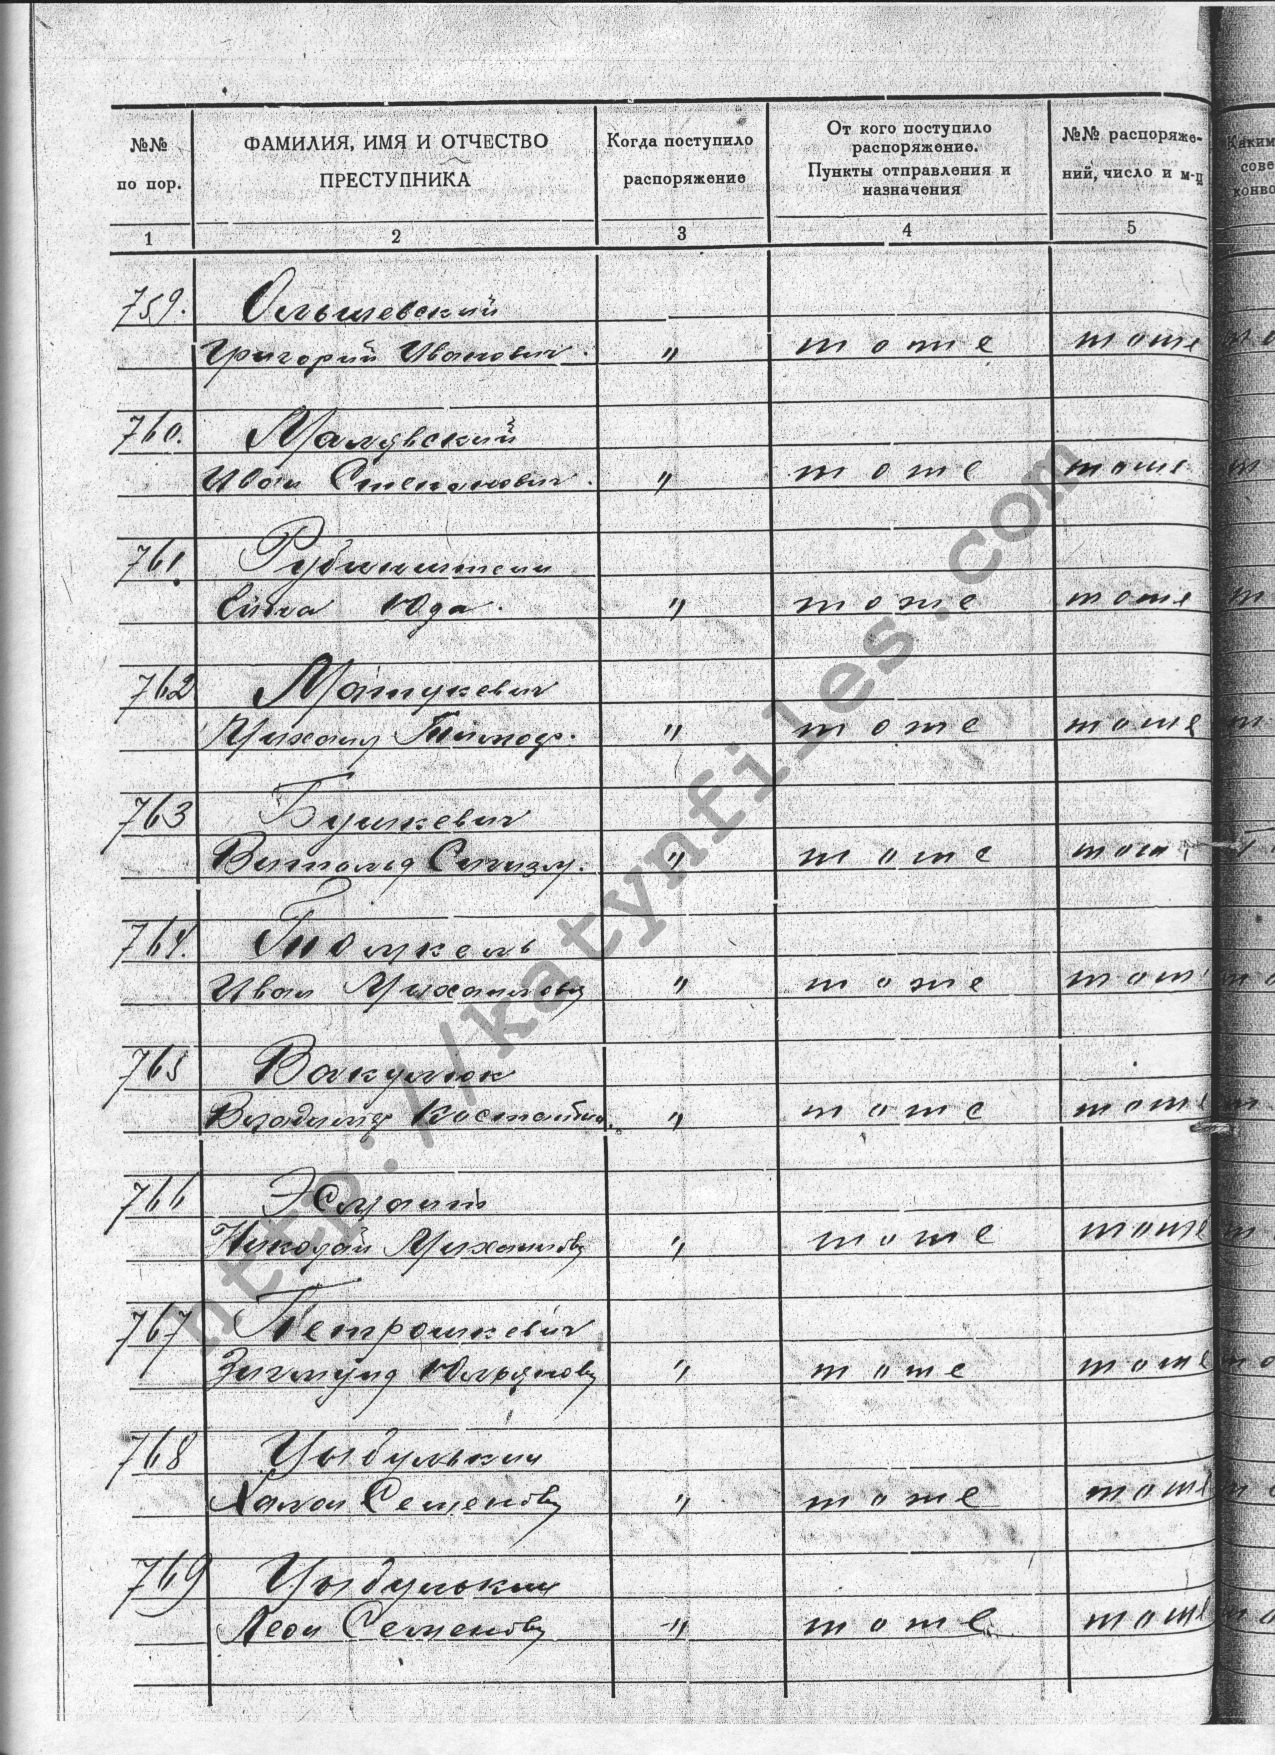 №№ по пор.
ФАМИЛИЯ, ИМЯ И ОТЧЕСТВО ПРЕСТУПНИКА
Когда поступило распоряжение
От кого поступило распоряжение. Пункты отправления и назначения
№№ распоряже-ний, число и м-ц
1 2 3 4 5
759. Ольшевский
Григорий Иванович. " тоже тоже
760. Малявский
Иван Степанович. " тоже тоже
761. Рубинштейн
Юда. " тоже тоже
762 Матукевич
Михаил Тимоф. " тоже тоже
763 Бушкевич
Витольд Сигизм. " тоже тоже
764.
Иван Михайлович " тоже
765 Вакулюк
Владимир " тоже тоже
766
Николай " тоже тоже
767 Петрошкевич
Зигмунд " тоже тоже
768 Цыбулькин
" тоже тоже
769 Цыбулькин
Леон " тоже тоже
Каким
сове
конво
http://katynfiles.com